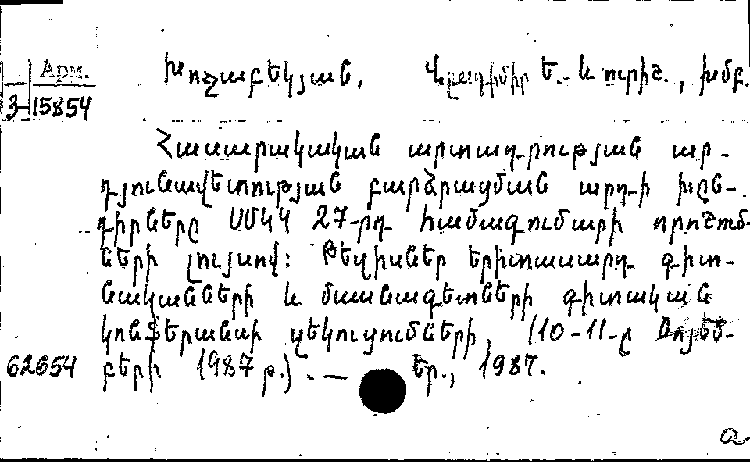 Арм. Խոշաբեկյան, Վլադիմիր Ե. և ուրիշ., խմբ.
3-15854
Հասարակական արտադրության ար-
դյունավետության բարձրացման արդի խըն-
դիրները ՍՄԿԿ 27-րդ համագումարի որոշում-
ների լույսով: Թեզիսներ երիտասարդ գիտ-
նականների և մասնագետների գիտական
կոնֆերանսի զեկուցումների, (10-11-ը նոյեմ-
62654 բերի 1987 թ.). — Եր., 1987.
а